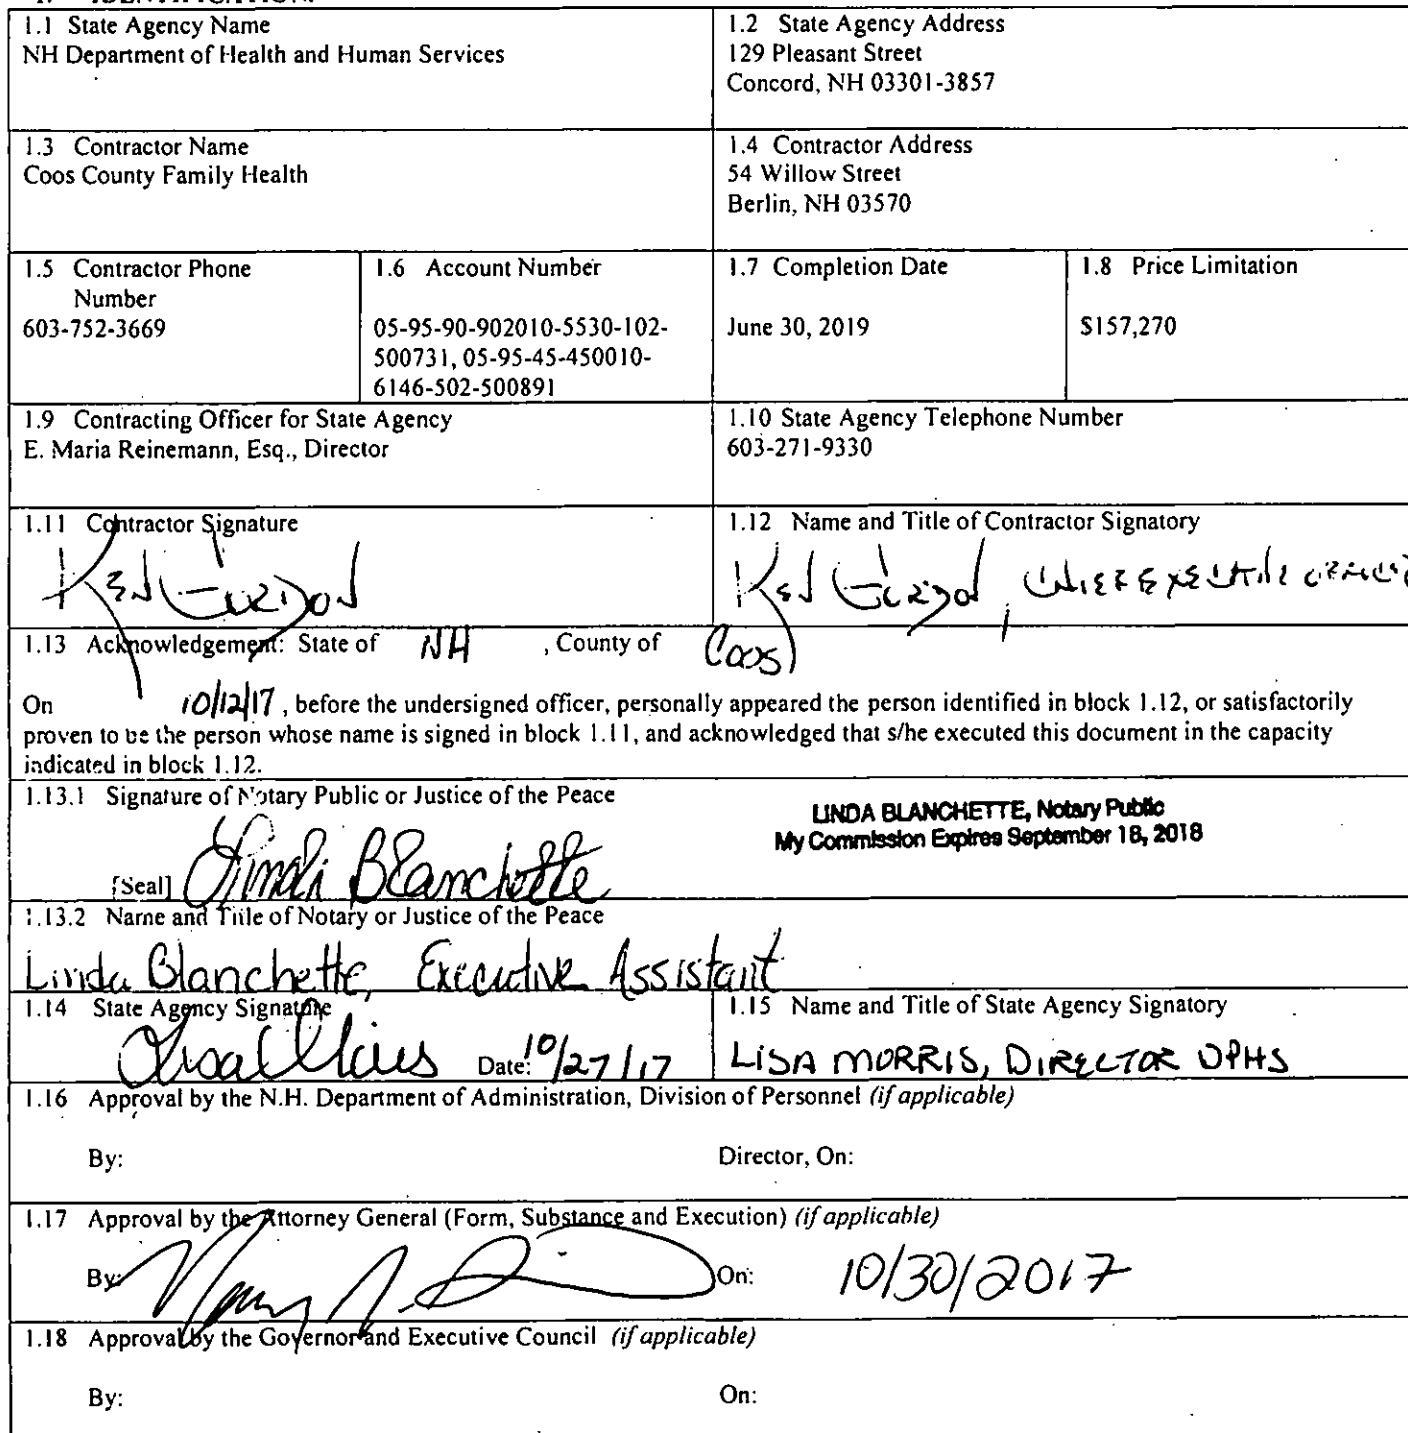 1. IDENTIFICATION.
1.1 State Agency Name
NH Department of Health and Human Services
1.2 State Agency Address
129 Pleasant Street
Concord, NH 03301-3857
1.3 Contractor Name
Coos County Family Health
1.4 Contractor Address
54 Willow Street
Berlin, NH 03570
1.5 Contractor Phone
Number
603-752-3669
1.6 Account Number
05-95-90-902010-5530-102-
500731, 05-95-45-450010-
6146-502-500891
1.7 Completion Date
June 30, 2019
1.8 Price Limitation
$157,270
1.9 Contracting Officer for State Agency
E. Maria Reinemann, Esq., Director
1.10 State Agency Telephone Number
603-271-9330
1.11 Contractor Signature
Ken Gordon
1.12 Name and Title of Contractor Signatory
Ken Gordon, Chief Executive Officer
1.13 Acknowledgement: State of NH , County of Coos
On 10/12/17, before the undersigned officer, personally appeared the person identified in block 1.12, or satisfactorily
proven to be the person whose name is signed in block 1.11, and acknowledged that s/he executed this document in the capacity
indicated in block 1.12.
1.13.1 Signature of Notary Public or Justice of the Peace
LINDA BLANCHETTE, Notary Public
My Commission Expires September 18, 2018
[Seal] Linda Blanchette
1.13.2 Name and Title of Notary or Justice of the Peace
Linda Blanchette, Executive Assistant
1.14 State Agency Signature
Date: 10/27/17
1.15 Name and Title of State Agency Signatory
LISA MORRIS, DIRECTOR DPHS
1.16 Approval by the N.H. Department of Administration, Division of Personnel (if applicable)
By: Director, On:
1.17 Approval by the Attorney General (Form, Substance and Execution) (if applicable)
By: On: 10/30/2017
1.18 Approval by the Governor and Executive Council (if applicable)
By: On: